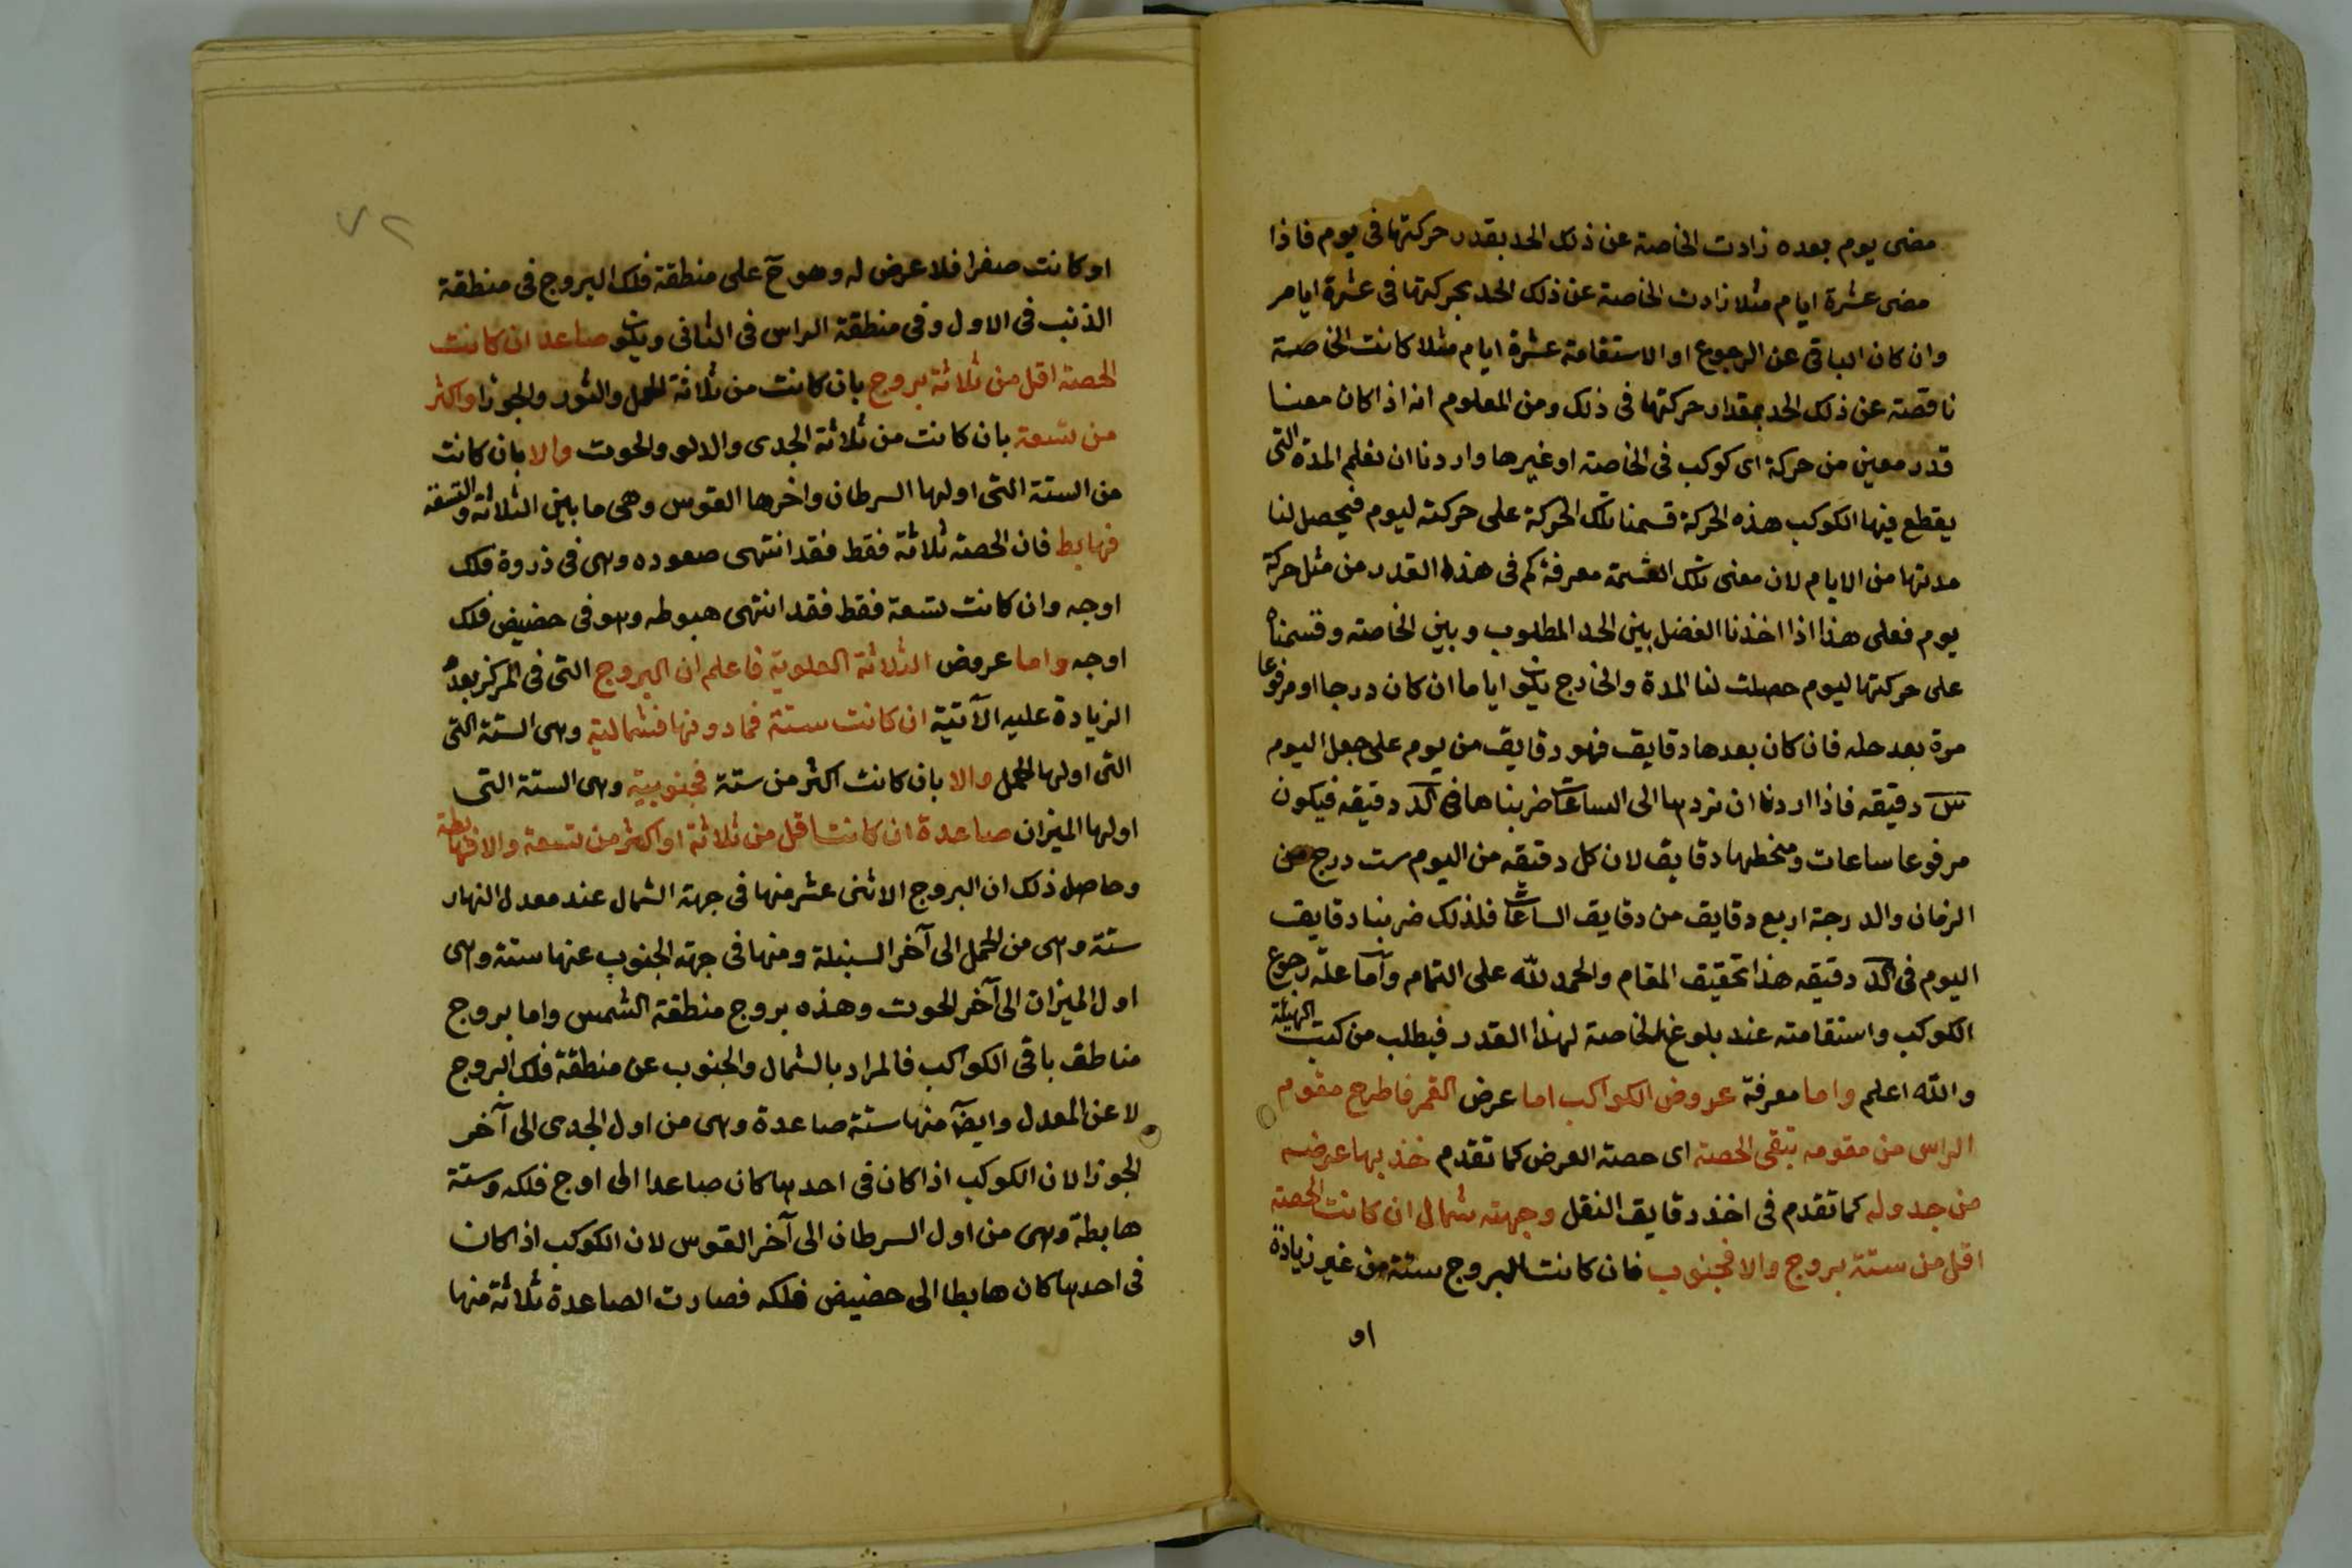 مضى يوم بعده زادت الخاصة عن ذلك الحد بقدر حركتها فى يوم فاذا
مضى عشرة ايام مثلا زادت الخاصة عن ذلك الحد بحركتها فى عشرة ايام
وان كان الباقى عن الرجوع او الاستقامة عشرة ايام مثلا كانت الخاصة
ناقصة عن ذلك الحد بمقدار حركتها فى ذلك ومن المعلوم انه اذا كان معنا
قدر معين من حركة اى كوكب فى الخاصة او غيرها واردنا ان نعلم المدة التى
يقطع فيها الكوكب هذه الحركة قسمنا تلك الحركة على حركته ليوم فيحصل لنا
مدتها من الايام لان معنى تلك القسمة معرفة كم فى هذا القدر من مثل حركة
يوم فعلى هذا اذا اخذنا الفضل بين الحد المطلوب وبين الخاصة وقسمناه
على حركتها ليوم حصلت لنا المدة والخارج يكون اياما ان كان درجا او مرفوعا
مرة بعد حله فان كان بعدها دقايق فهو دقايق من يوم على جعل اليوم
س دقيقه فاذا اردنا ان نردها الى الساعات ضربناها فى كد دقيقه فيكون
مرفوعا ساعات ومنحطها دقايق لان كل دقيقه من اليوم ست درج من
الزمان والدرجة اربع دقايق من دقايق الساعات فلذلك ضربنا دقايق
اليوم فى كد دقيقه هذا تحقيق المقام والحمد لله على التمام وآما علة رجوع
الكوكب واستقامته عند بلوغ الخاصة لهذا القدر فيطلب من كتب الهيئة
والله اعلم واما معرفة عروض الكواكب اما عرض القمر فاطرح مقوم
الراس من مقومه تبقى الحصة اى حصة العرض كما تقدم خذ بها عرضه
من جدوله كما تقدم فى اخذ دقايق النقل وجهته شمال ان كانت الحصة
اقل من ستة بروج والا فجنوب فان كانت البروج ستة من غير زيادة
او
٧٢
او كانت صفرا فلا عرض له وهو ح على منطقة فلك البروج فى منطقة
الذنب فى الاول وفى منطقة الراس فى الثانى ويكون صاعدا ان كانت
الحصة اقل من ثلاثة بروج بان كانت من ثلاثة الحمل والثور والجوزا واكثر
من تسعة بان كانت من ثلاثة الجدى والدلو والحوت والا بان كانت
من الستة التى اولها السرطان واخرها القوس وهى ما بين الثلاثة والتسعة
فهابط فان الحصة ثلاثة فقط فقد انتهى صعوده وهى فى ذروة فلك
اوجه وان كانت تسعة فقط فقد انتهى هبوطه وهو فى حضيض فلك
اوجه واما عروض الثلاثة العلوية فاعلم ان البروج التى فى المركز بعد
الزيادة عليه الآتية ان كانت ستة فما دونها فشمالية وهى الستة التى
التى اولها الحمل والا بان كانت اكثر من ستة فجنوبية وهى الستة التى
اولها الميزان صاعدة ان كانت اقل من ثلاثة او اكثر من تسعة والا فهابطة
وحاصل ذلك ان البروج الاثنى عشر منها فى جهة الشمال عند معدل النهار
ستة وهى من الحمل الى آخر السنبلة ومنها فى جهة الجنوب عنها ستة وهى
اول الميزان الى آخر الحوت وهذه بروج منطقة الشمس واما بروج
مناطق باقى الكواكب فالمراد بالشمال والجنوب عن منطقة فلك البروج
لا عن المعدل وايضا منها ستة صاعدة وهى من اول الجدى الى آخر
الجوزا لان الكوكب اذا كان فى احدها كان صاعدا الى اوج فلكه وستة
هابطة وهى من اول السرطان الى آخر القوس لان الكوكب اذا كان
فى احدها كان هابطا الى حضيض فلكه فصارت الصاعدة ثلاثة منها